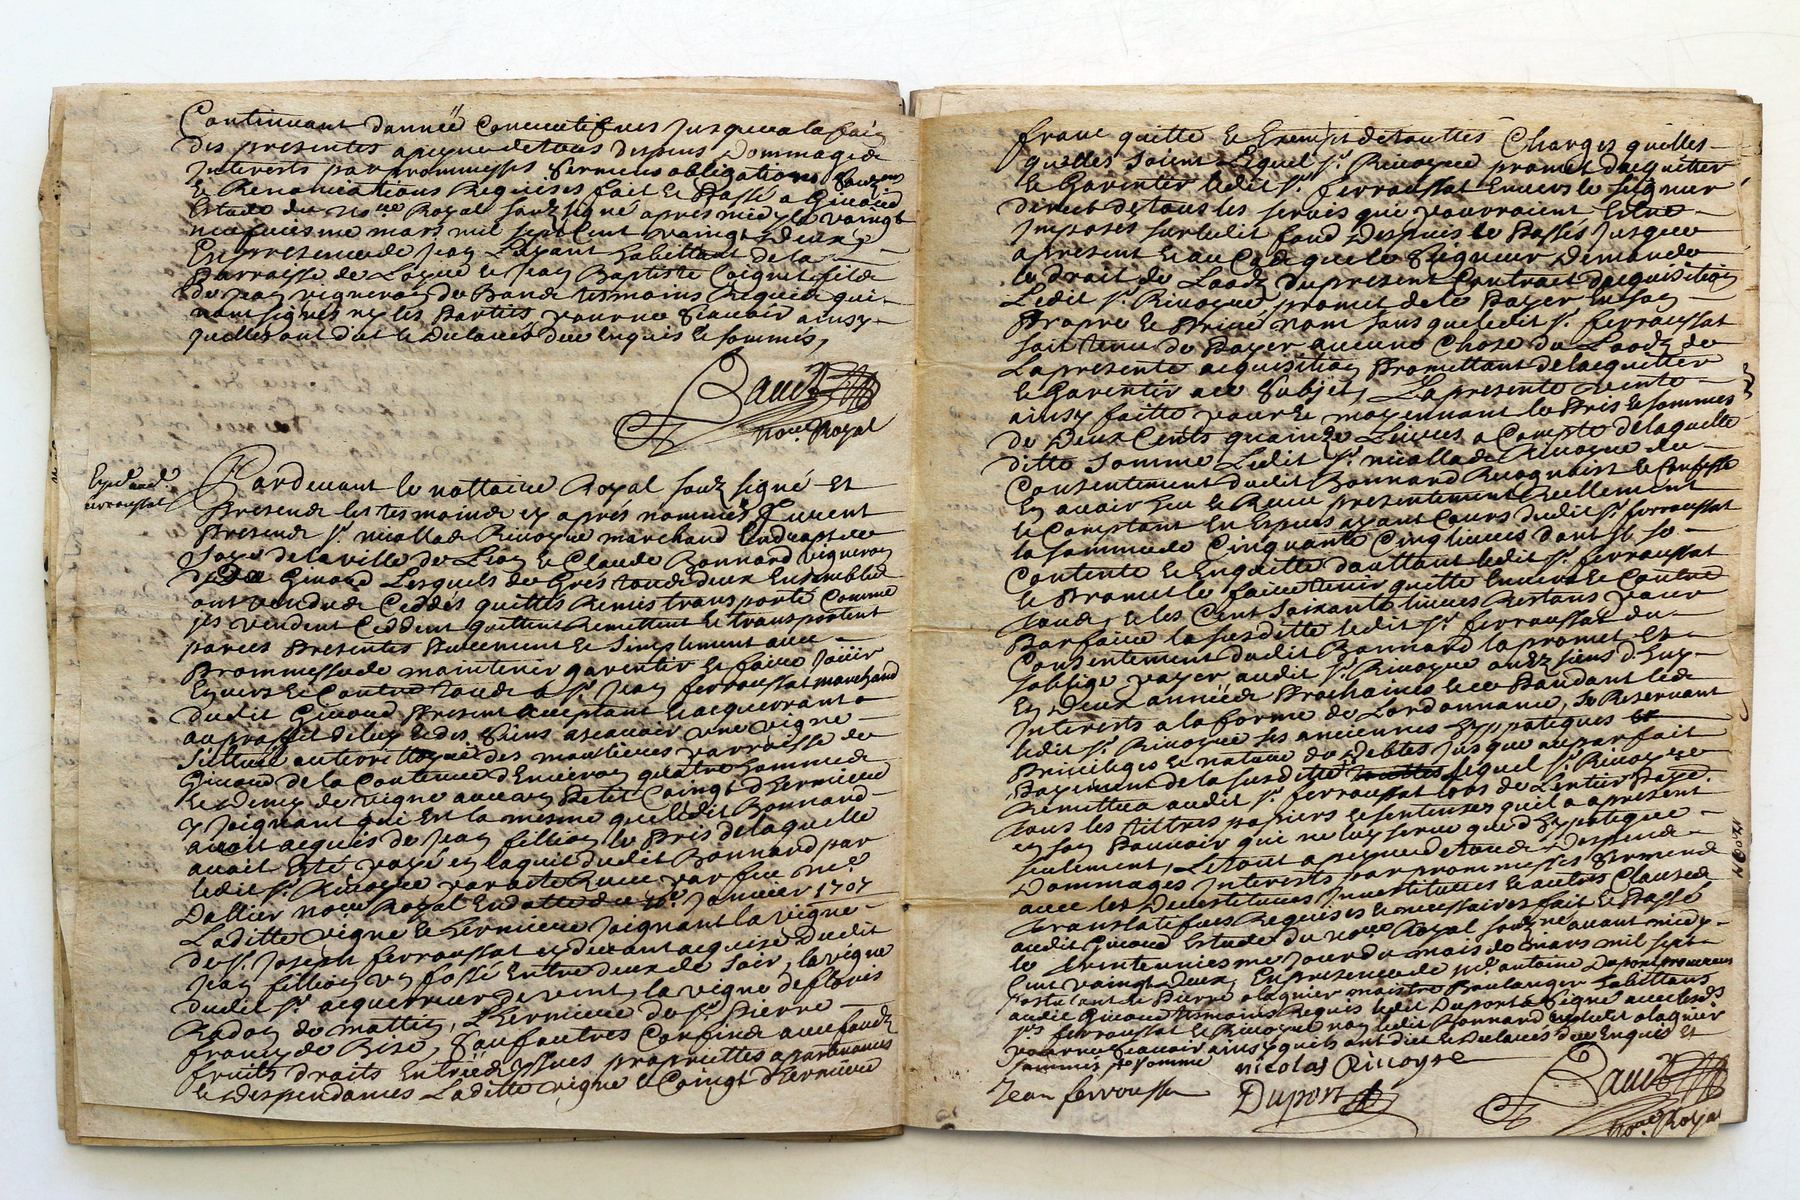 Continuant dannéé Consecutifves jusques a la fain
des presentes a peyne de tous despens dommages &
Interests par prommesses sermens obligations
& Renonciations Requises fait & Passé a Givord
Estude du No.re Royal souz signé apres midy le vaingt
neufviesme mars mil sept Cent vaingt deux
En presence de Jean habittant de la
Parroesse de & Jean Baptiste fils
de Jean vigneron de temoins Requis qui
nont signés ny les Parties pour ne scavoir ainsy
quelles ont dit & declarés de ce Enquis & sommés,
no.re Royal
Exped. aud.
ferroussat
Pardevant le nottaire Royal souz signé Et
Presens les tesmoins cy apres nommés furent
Presens s.r nicollas Rivoyre marchand
soye de la ville de Lion & Claude Bonnard vigneron
de Givord Lesquels de Gres tous deux Ensembles
ont vendus Ceddés quittés Remis transporté Comme
jls vendent Ceddent quittent Remettent & transportent
par ces Presentes Purement & simplement avec
Prommesse de maintenir garentir & faire Joüir
Envers & Contre tous a s.r Jean ferroussat marchand
dudit Givord Present acceptant & acquerrant
au proffit de luy & des siens a scavoir une vigne
Situéé au territtoire des parroisse de
Givord de la Contenue d'Environ quatre hommés
& demy de vigne avec un Petit Coingt d'hermiere
y Joignant qui Est la mesme que ledit Bonnard
avoit acquis de Jean fillion le Pris de laquelle
avoit Esté payé en laquit dudit Bonnard par
ledit s.r Rivoyre par acte Receu par feu me
Dallier no.re Royal En datte du Janvier 1707
Laditte vigne & hermiere Joignant la vigne
de s.r Joseph ferroussat cy devant acquise dudit
Jean fillion un fossé Entre deux de soir, la vigne
dudit s.r acquerreur de vent, la vigne de
de L'hermiere de s.r Pierre
françois de Bise, sauf autres Confins avec fondz
fruits droits Entréés Issues propriettés apartenances
& despendances Laditte vigne & Coingt d'hermiere
franc quitte & Exempt de touttes Charges quelles
quelles soient Lequel s.r Rivoyre promet dacquitter
& Garentir ledit s.r ferroussat Envers le seigneur
direct de tous les servis qui pourroient Estre
Imposés sur ledit fond despuis le Passés Jusques
a present & au Cas que le seigneur demande
le droit de Laodz du present Contrat dacquisition
Ledit s.r Rivoyre promet de le Payer En son
Propre & Privé nom sans que ledit s.r ferroussat
soit tenu de Payer aucune Chose du Laodz de
La presente acquisition Promettant de lacquitter
& Garentir a ce Subjet, La presente vente
ainsy faitte pour & moyennant le Pris & sommes
de deux Cents quainze Livres a Compte de laquelle
ditte somme Ledit s.r nicollas Rivoyre du
Consentement dudit Bonnard Recognoist & Confesse
En avoir heu & Receu presentement & Reellement
& Comptant En Especes ayant Cours dudit s.r ferroussat
la somme de Cinquante Cinq livres dont Il se
Contente & Enquitte dauttant ledit s.r ferroussat
& Promet le faire tenir quitte Envers & Contre
tous, & les Cent soixante livres Restans pour
Parfaire la susditte ledit s.r ferroussat du
Consentement dudit Bonnard la promet Et
soblige payer audit s.r Rivoyre ou ez siens d'huy
En deux annéés Prochaines & ce Pandant les
Interests a la forme de Lordonnance, se Reservant
ledit s.r Rivoyre ses anciennes hyppotiques &
Privileges & nature de debtes Jusque au parfait
Payement de la susditte lequel s.r Rivoyre
Remettra audit s.r ferroussat lors de Lentier Paye.
tous les tittres papiers & sentenses quil a a present
en son Pouvoir qui ne luy serve que d'hypotique
seulement, Le tout a peyne de tous despens
Dommages Interests par prommesses sermens
avec les devestitures Investitures & autres Clauses
translatifves Requises & necessaires fait & Passé
audit Givord Estude du no.re Royal souz.né avant midy
le trentuniesme Jour du mois de mars mil sept
Cent vaingt deux, En presence de antoine Dupont procureur
Postulant & Pierre alagnier maistre Boulanger habittans
audit Givord tesmoins Requis ledit Dupont a signé avec lesd.s
s.rs ferroussat & Rivoyre non ledit Bonnard ny ledit alagnier
pour ne scavoir ainsy quils ont dit & declarés de ce Enquis Et
sommés
nicolas Rivoyre
Jean ferroussa
Dupont
no.re Royal